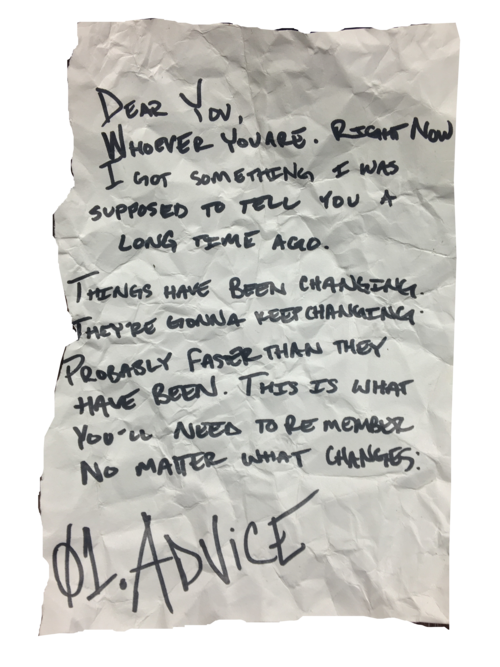 DEAR YOU,
WHOEVER YOU ARE. RIGHT NOW
I GOT SOMETHING I WAS
SUPPOSED TO TELL YOU A
LONG TIME AGO.
THINGS HAVE BEEN CHANGING.
THEY'RE GONNA KEEP CHANGING.
PROBABLY FASTER THAN THEY
HAVE BEEN. THIS IS WHAT
YOU'LL NEED TO REMEMBER
NO MATTER WHAT CHANGES:
01. ADVICE